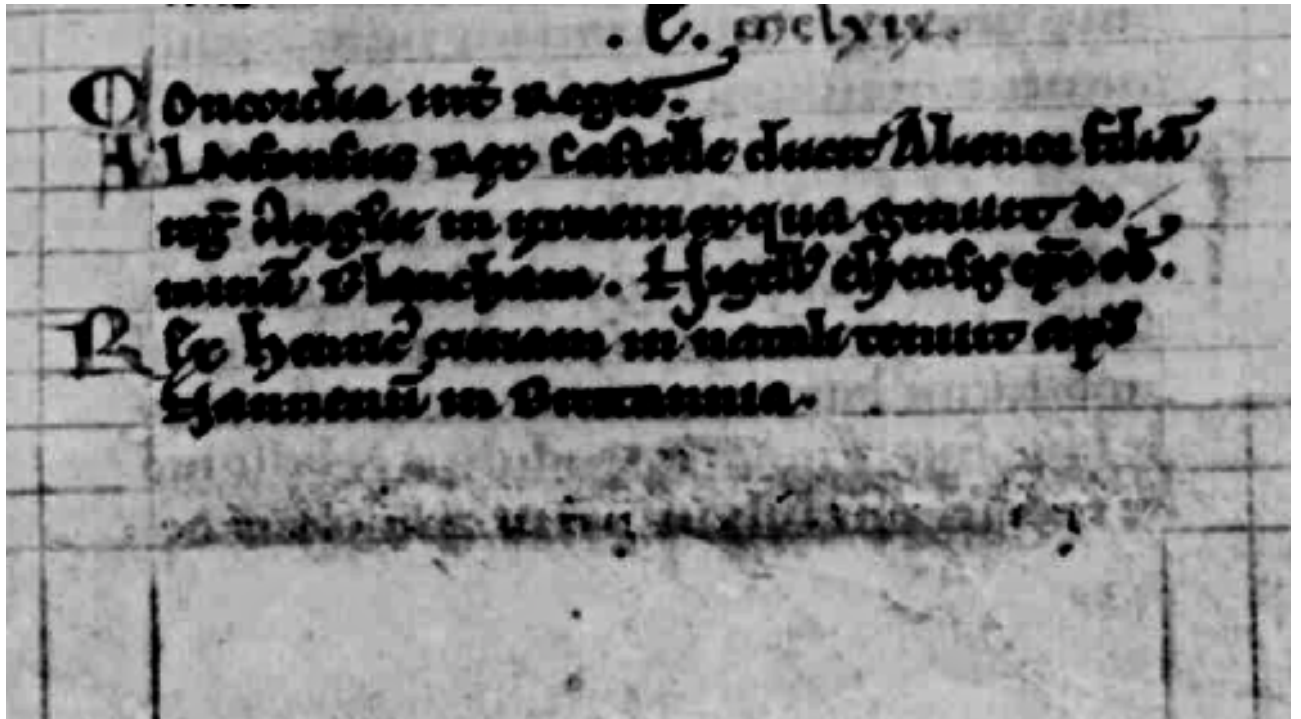 .e. mclxix.
Concordia int̄ Reges.
Aldefonsus Rex Castelle duxit Alienor filiā
reḡ Anglie in uxorem ex qua genuit do
minā Blancham. Nigell' elyensis ep̄s ob'.
Rex henric' curiam in natali tenuit apd'
Nannetū in Britannia.